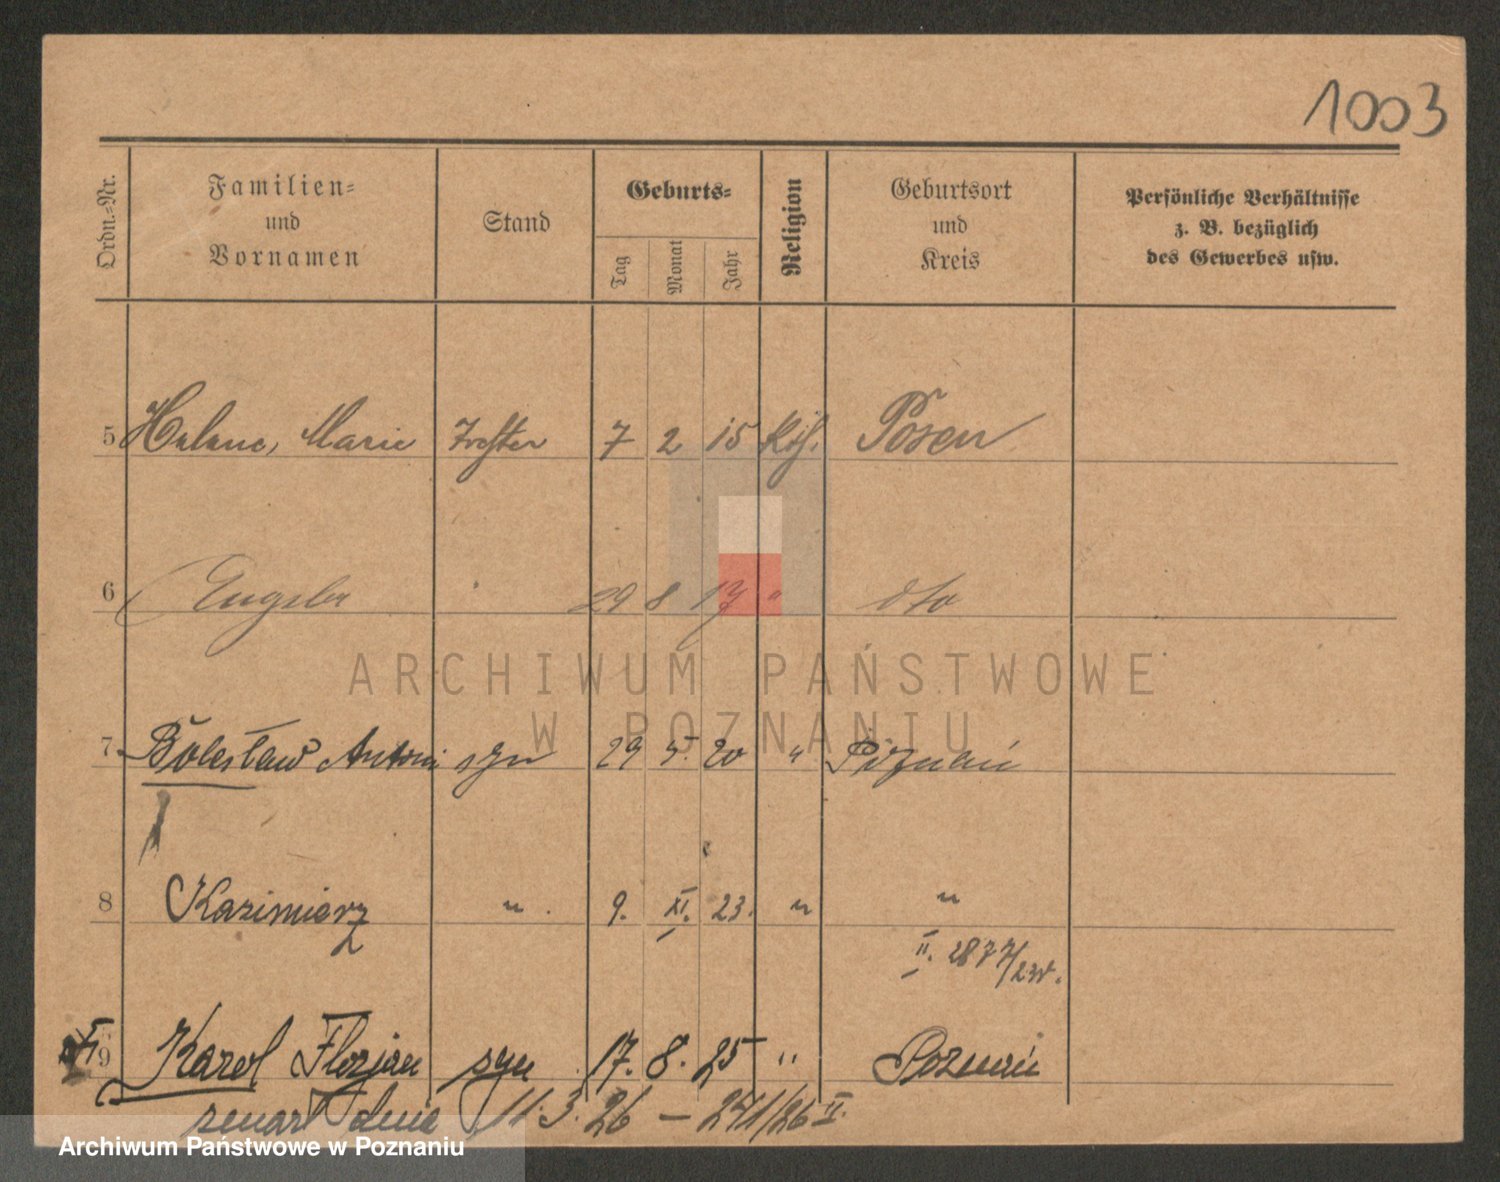 1003
Ordn.=Nr. Familien= und Vornamen Stand Geburts= Tag Monat Jahr Religion Geburtsort und Kreis Persönliche Verhältnisse z. B. bezüglich des Gewerbes usw.
5 Helene, Marie Tochter 7 2 15 kth. Posen
6 29 8 17 " dto
7. Bolesław Antoni syn 29 5. 20 " Poznań
8 Kazimierz " . 9. XI. 23. " "
II.
9 Karol Florjan syn 17. 8. 25 " Poznań
zmarł dnia 11. 3. 26 – 241/26 II.
ARCHIWUM PAŃSTWOWE
W POZNANIU
Archiwum Państwowe w Poznaniu